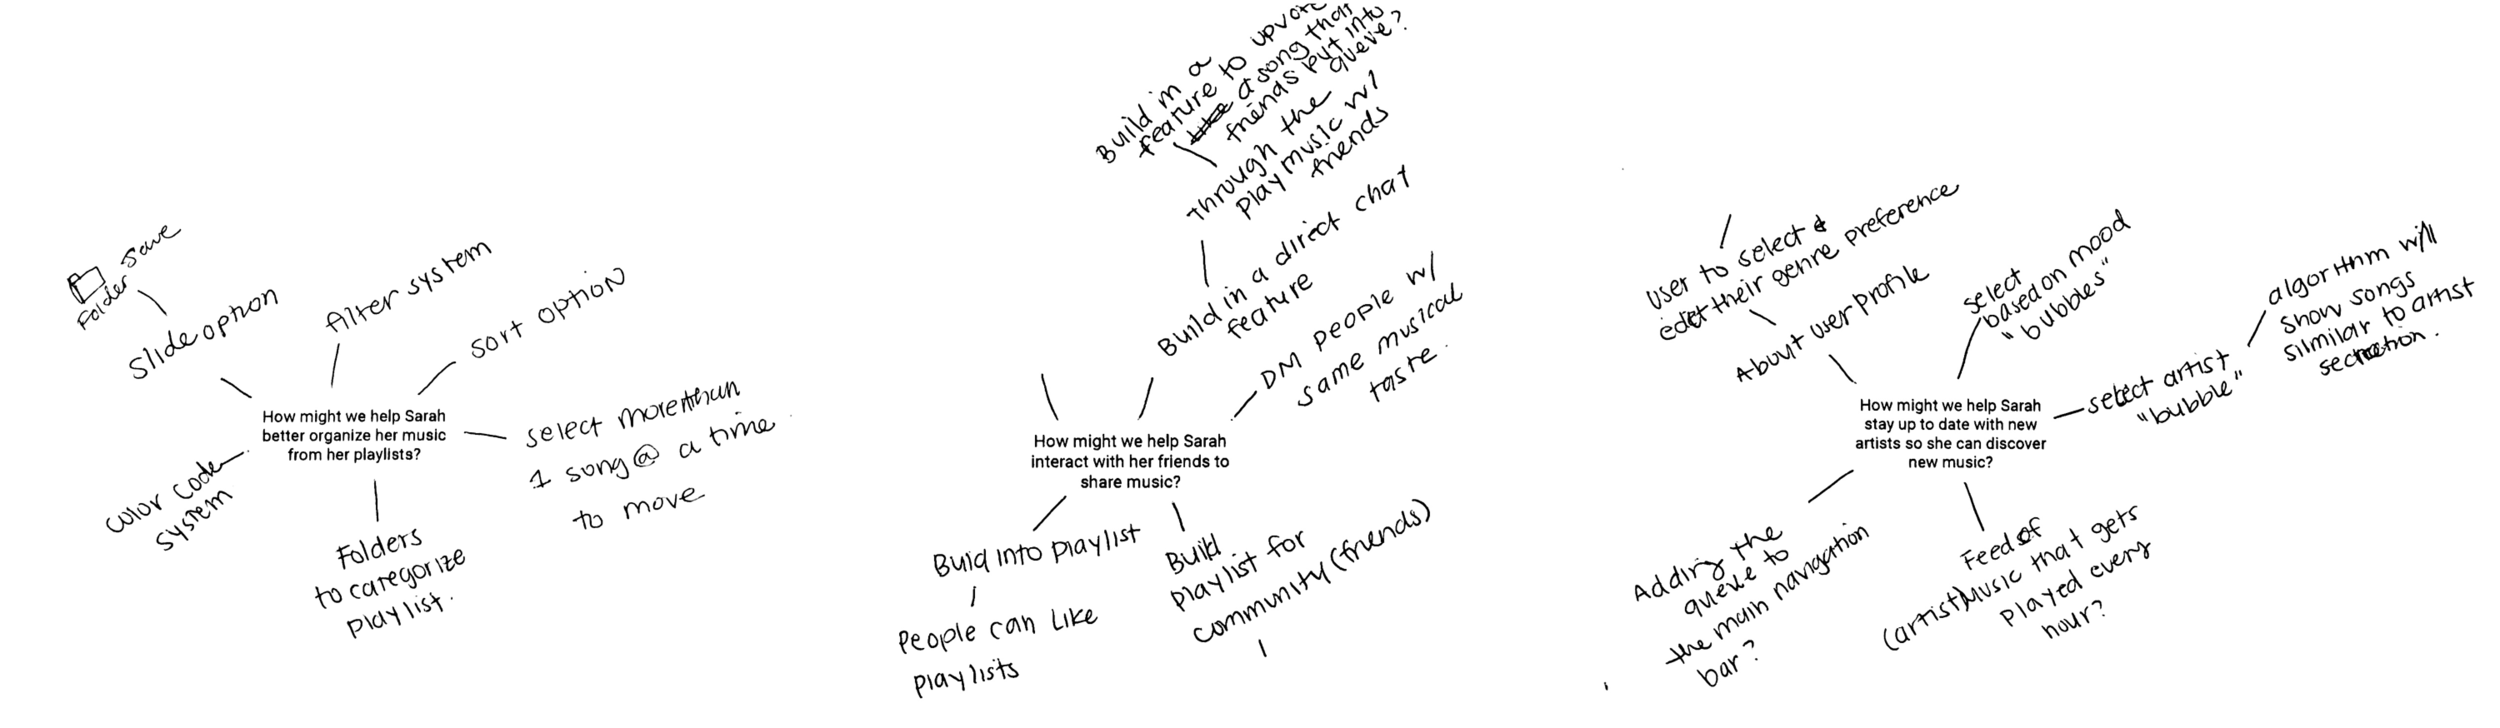 Save
Folder
Slide option
filter system
sort option
How might we help Sarah
better organize her music
from her playlists?
select more than
1 song @ a time
to move
color code
system
Folders
to categorize
playlist.
Build in a
feature to upvote
a song that
friends put into
queue?
through the
play music w/
friends
Build in a direct chat
feature
DM people w/
same musical
taste.
How might we help Sarah
interact with her friends to
share music?
Build into playlist
People can like
playlists
Build
playlist for
community (friends)
User to select &
edit their genre preference
About user profile
select
based on mood
"bubbles"
algorithm will
show songs
similar to artist
select artist
"bubble"
How might we help Sarah
stay up to date with new
artists so she can discover
new music?
Adding the
queue to
the main navigation
bar?
Feed of
(artist) Music that gets
Played every
hour?